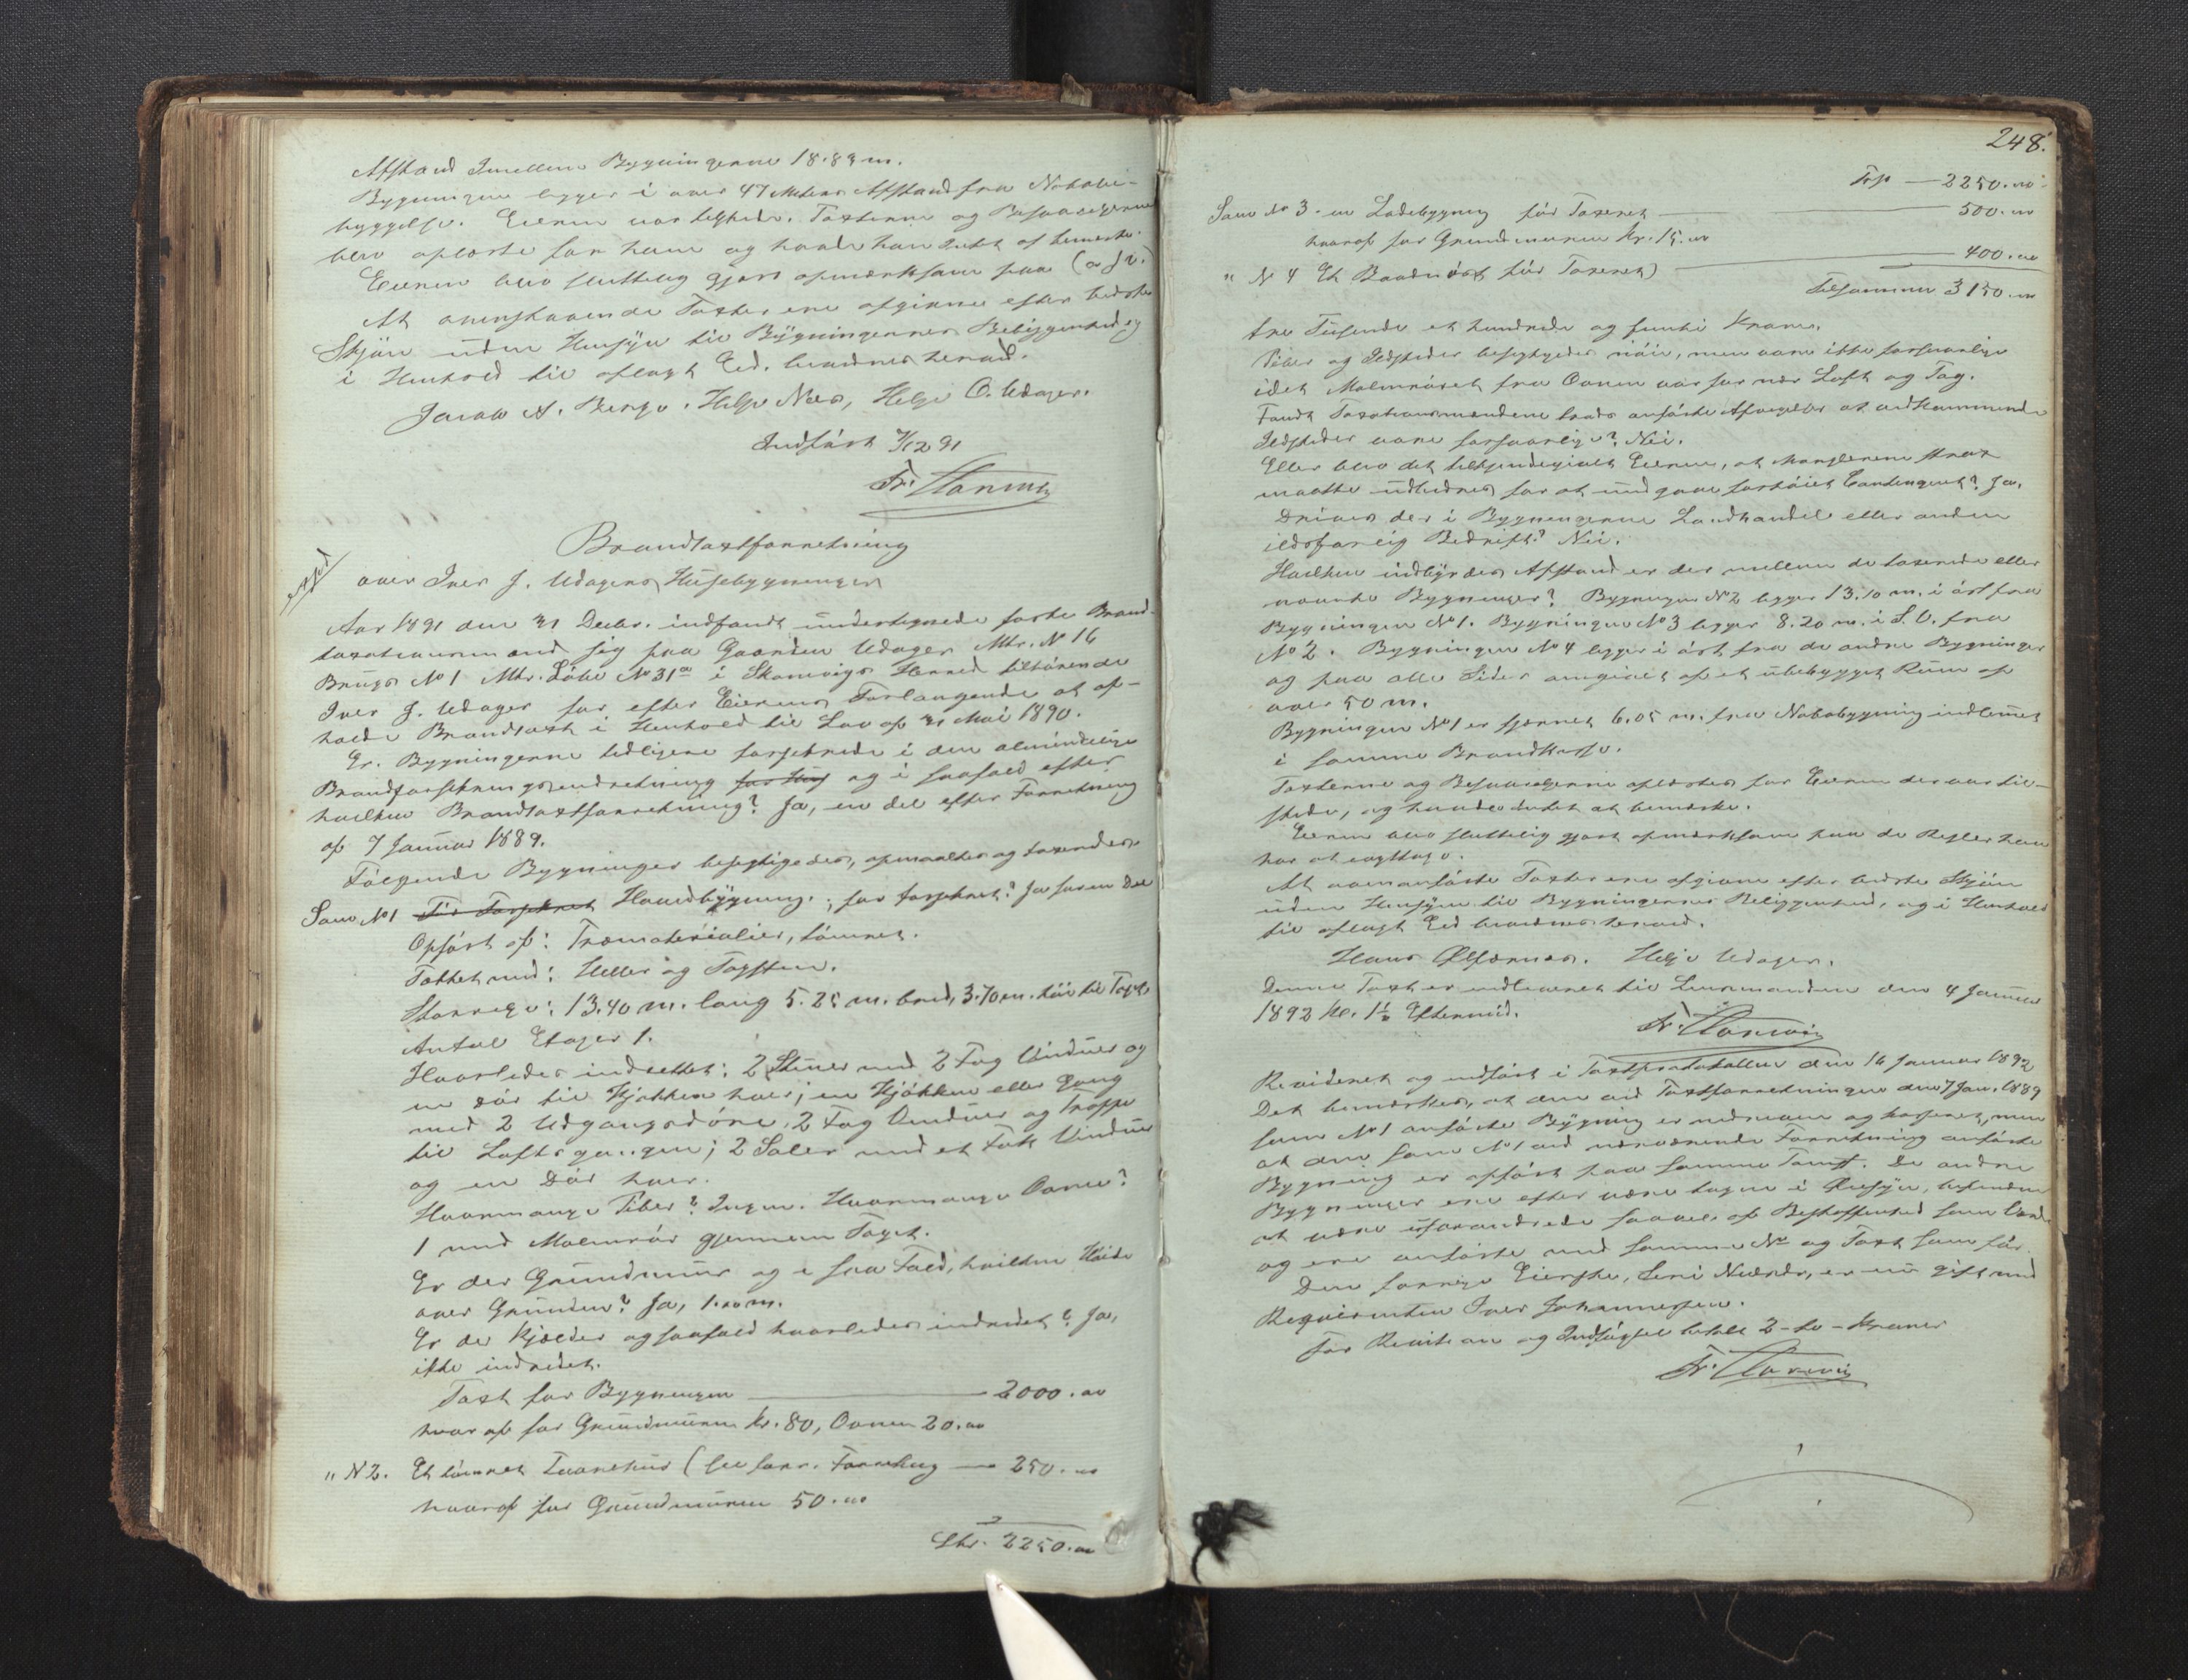 Afstand Imellem Bygningerne 18.83 m.
Bygningen ligger i over 47 Meters Afstand fra Nabobe-
byggelse. Eieren var tilstede. Taxterne og Besvarelserne
blev oplæste for ham og havde han Intet at bemærke.
Eieren blev sluttelig gjort opmærksom paa
At ovenstaaende Taxter ere afgivne efter bedste
Skjøn uden Hensyn til Bygningernes Beliggenhed og
i Henhold til aflagt Ed, bevidnes herved.
Jacob A. Berge. Helge Næs, Helge O. Udager.
Indført 7/12 91
Fr.
Brandtaxtforretning
over Iver J. Udagers Husebygninger
Aar 1891 den 31 Decbr. indfandt undertegnede faste Brand-
taxationsmænd sig paa Gaarden Udager Mtr. No 16
Brugs No 1 Mtr. Løbe No 31a i Skonevigs Herred tilhørende
Iver J. Udager for efter Eierens Forlangende at af-
holde Brandtaxt i Henhold til Lov af 31 Mai 1890.
Er Bygningerne tidligere forsikrede i den almindelige
Brandforsikringsindretning og i saafald efter
hvilken Brandtaxtforretning? Ja, en del efter Forretning
af 7 Januar 1889.
Følgende Bygninger besigtigedes, opmaaltes og taxeredes.
Som No 1 Før Forsikret Hovedbygning, før forsikret? Ja for en Del
Opført af: Træmaterialier, tømret.
Tækket med: Heller og Tagsten.
Størrelse: 13.40 m. lang 5.25 m. bred, 3.70 m. høi til Taget
Antal Etager 1.
Hvorledes indrettet: 2 Stuer med 2 Fag Vinduer og
en Dør til Kjøkken hver; en Kjøkken eller Gang
med 2 Udgangsdøre, 2 Fag Vinduer og Trappe
til Loftsgangen; 2 Saler med et Fag Vinduer
og en Dør hver.
Hvormange Piber? Ingen. Hvormange Ovne?
1 med Malmrør gjennem Taget.
Er der Grundmur og i saa Fald, hvilken Høide
over Grunden? Ja, 1.00 m.
Er der Kjælder og saafald hvorledes indredet? Ja,
ikke indredet.
Taxt for Bygningen — 2000.00
hvoraf for Grundmuren kr. 80, Ovnen 20.00
" N 2. Et tømret Tværehus (se forr. Forretning — 250.00
hvoraf for Grundmuren 50.00
Ltr. 2250.00
248.
Trsp — 2250.00
Som No 3. en Ladebygning før Taxeret — 500.00
hvoraf for Grundmuren kr. 15.00
" N 4 Et Baadnøst før Taxeret) — 400.00
Tilsammen 3150.00
tre Tusende et hundrede og femti Kroner.
Piber og Ildsteder besigtigedes nøie, men vare ikke forsvarlige
idet Malmrøret fra Ovnen var for nær Loft og Tag.
Fandt Taxationsmændene trods anførte Afvigelser at vedkommende
Ildsteder vare forsvarlige? Nei.
Eller blev det tilkjendegivet Eieren, at Manglerne strax
maatte udbedres for at undgaa forhøiet Contingent? Ja.
Drives der i Bygningerne Landhandel eller anden
ildsfarlig Bedrift? Nei.
Hvilken indbyrdes Afstand er der mellem de taxerede eller
nævnte Bygninger? Bygningen No 2 ligger 13.10 m. i øst fra
Bygningen No 1. Bygningen No 3 ligger 8.20 m. i S.O. fra
No 2. Bygningen No 4 ligger i øst fra de andre Bygninger
og paa alle Sider omgivet af et ubebygget Rum af
over 50 m.
Bygningen No 1 er fjernet 6.05 m. fra Nabobygning indlemmet
i samme Brandkasse.
Taxterne og Besvarelserne oplæstes for Eieren der var til-
stede, og havde Intet at bemærke.
Eieren blev sluttelig gjort opmærksom paa de Regler han
har at iagttage.
At ovenanførte Taxter ere afgivne efter bedste Skjøn
uden Hensyn til Bygningernes Beliggenhed, og i Henhold
til aflagt Ed bevidnes herved.
Hans Ølfærnes. Helge Udager.
Denne Taxt er indleveret til Lensmanden den 4 Januar
1892 Kl. 1½ Eftermid.
Fr.
Revideret og indført i Taxtprotokollen den 16 Januar 1892
Det bemærkes, at den ved Taxtforretningen den 7 Jan. 1889
som No 1 anførte Bygning er nedreven og kasseret, men
at den som No 1 ved nærværende Forretning anførte
Bygning er opført paa samme Tomt. De andre
Bygninger ere efter være tagne i Øiesyn, befundne
at være uforandrede saavel af Beskaffenhed som Værdi
og ere anførte med samme No og Taxt som før.
Den forrige Eierske, er nu gift med
Requirenten Iver Johannessen.
For Revision og Indførsel betalt 2 - to - Kroner
Fr.